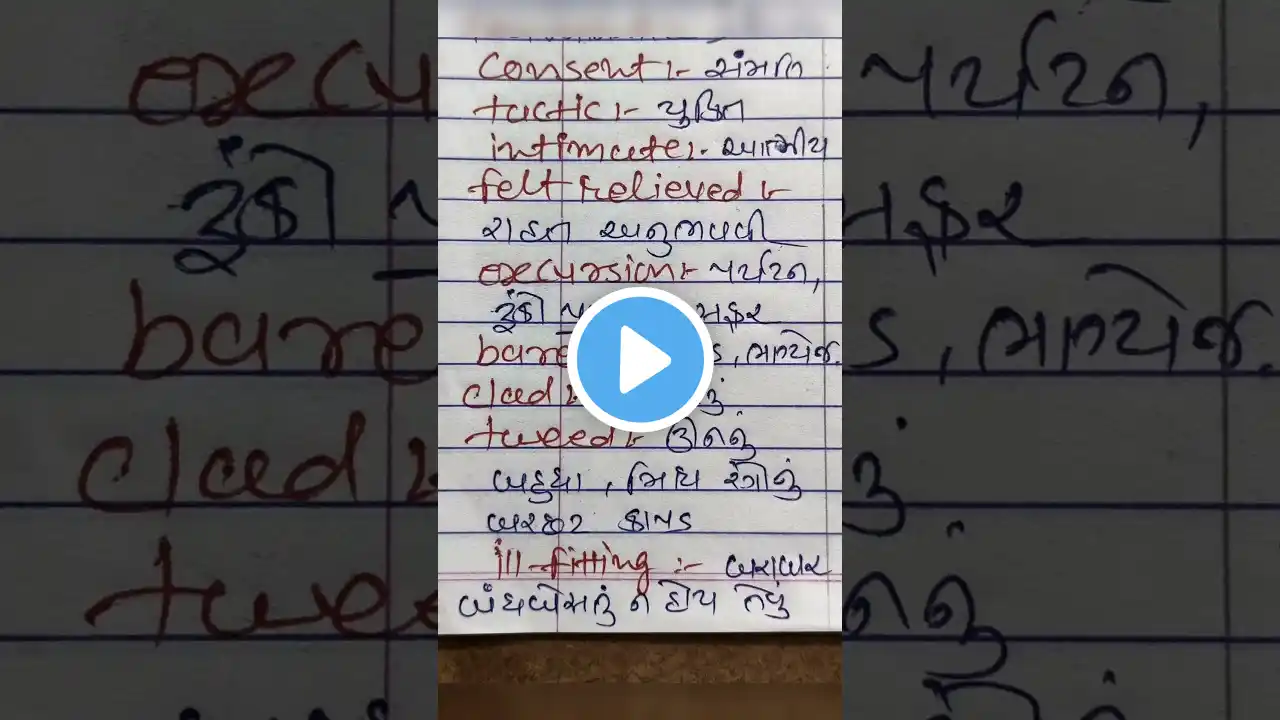 consent :- સંમતિ
tactic :- યુક્તિ
intimate :- આત્મીય
felt relieved :-
રાહત અનુભવવી
excursion :- પર્યટન,
ટૂંકી સફર
bare
clad
tweed :- ઊનનું
બહુધા, મિશ્ર રંગોનું
બરછટ કાપડ
ill-fitting :- બરાબર
બંધબેસતું ન હોય તેવું